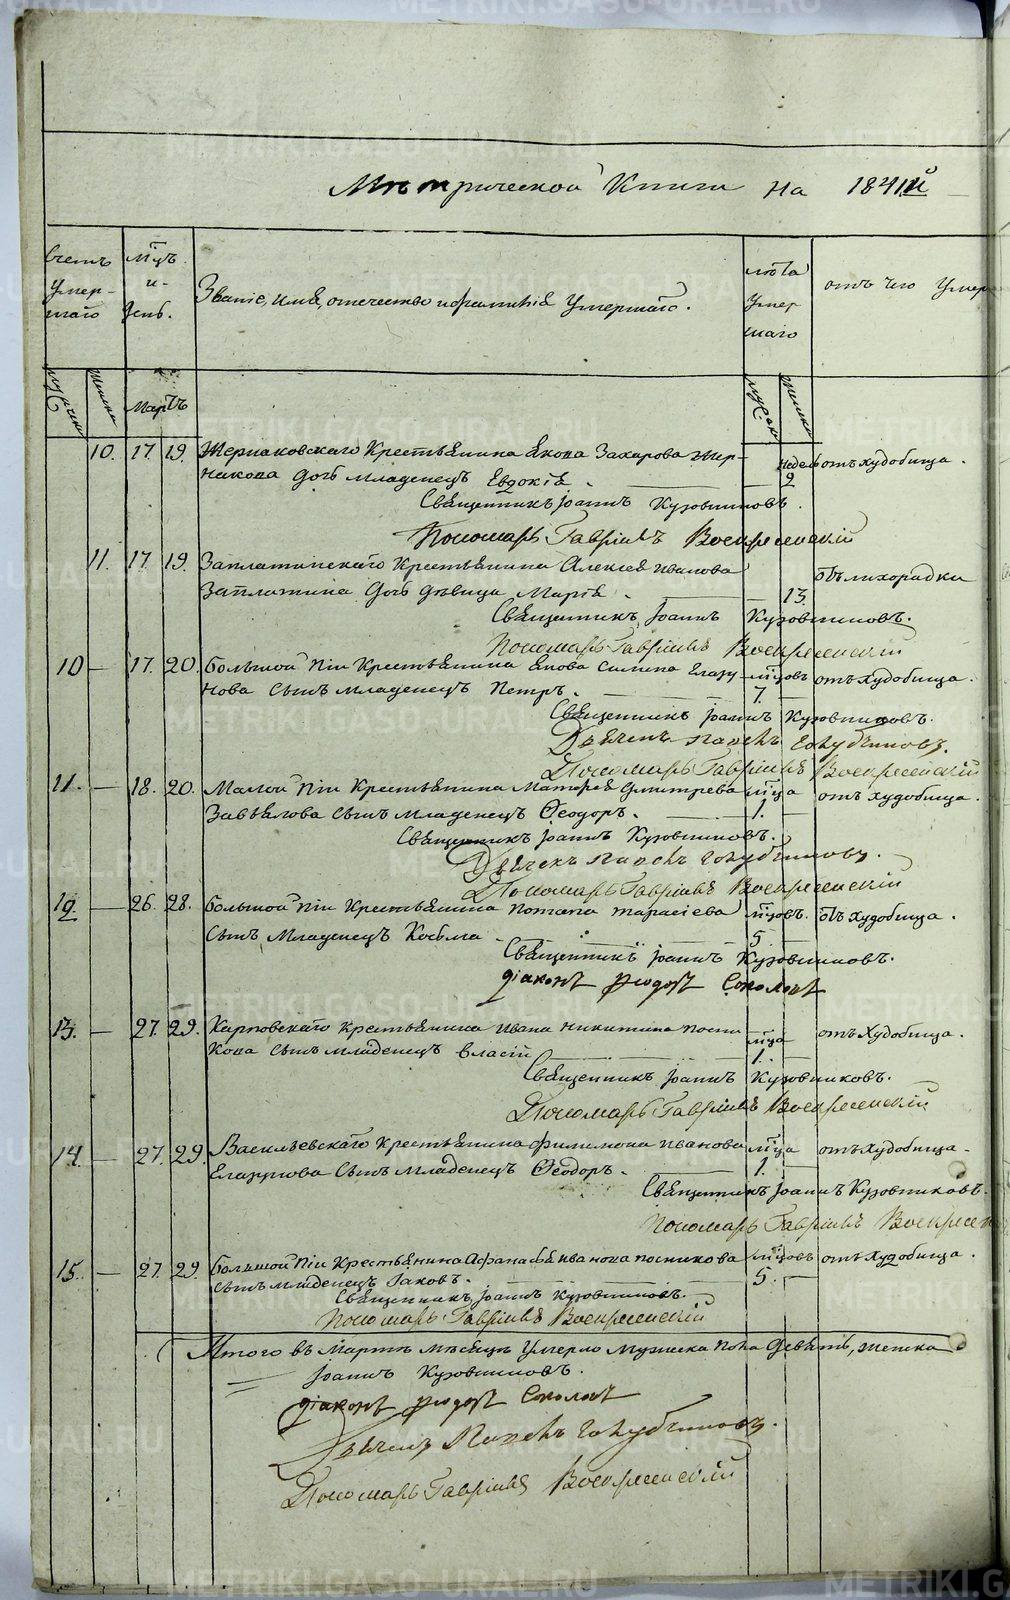 Метрической Книги на 1841й
Счетъ умер-шаго
Мцъ и День.
Званіе, имя, отечество и фамилія умершаго.
лѣта умершаго
отъ чего умер
Мартъ
10. 17. 19. Жернаковскаго Крестьянина Якова Захарова Жер- недел отъ худобища.
накова дочь младенецъ Евдокія. 2
Священникъ Іоаннъ Кузовниковъ.
Пономарь Гавріилъ Воскресенскій
11. 17. 19. Заплатинскаго Крестьянина Алексея Иванова отъ лихорадки
Заплатина дочь дѣвица Марія. 13.
Священникъ Іоаннъ Кузовниковъ.
Пономарь Гавріилъ Воскресенскій
10 — 17. 20. Большой Крестьянина Якова Силина Елазу- мцовъ отъ худобища.
нова сынъ младенецъ Петръ. 7.
Священникъ Іоаннъ Кузовниковъ.
Дьячекъ Голубчиковъ.
Пономарь Гавріилъ Воскресенскій
11. — 18. 20. Малой Крестьянина Дмитрева мца отъ худобища.
Завьялова сынъ младенецъ Ѳеодоръ. 1.
Священникъ Іоаннъ Кузовниковъ.
Дьячекъ Голубчиковъ.
Пономарь Гавріилъ Воскресенскій
12 — 26. 28. Большой Крестьянина Потапа Тарасіева мцовъ. отъ худобища.
сынъ младенецъ Косьма 5
Священникъ Іоаннъ Кузовниковъ.
Діаконъ Ѳеодоръ Соколовъ
13. — 27. 29. Карповскаго Крестьянина Ивана Никитина Посни мца отъ худобища.
кова сынъ младенецъ Власій 1.
Священникъ Іоаннъ Кузовниковъ.
Пономарь Гавріилъ Воскресенскій
14. — 27. 29. Васильевскаго Крестьянина Филимона Иванова мца отъ худобища.
сынъ младенецъ Ѳеодоръ. 1.
Священникъ Іоаннъ Кузовниковъ.
Пономарь Гавріилъ Воскресен
15. — 27. 29. Большой Крестьянина Афанасья Иванова Посникова мцовъ отъ худобища.
сынъ младенецъ Іаковъ. 5.
Священникъ Іоаннъ Кузовниковъ.
Пономарь Гавріилъ Воскресенскій
Итого въ Мартѣ мѣсяцѣ умерло мужеска пола девять, женска
Іоаннъ Кузовниковъ.
Діаконъ Ѳеодоръ Соколовъ
Дьячекъ Голубчиковъ.
Пономарь Гавріилъ Воскресенскій
METRIKI.GASO-URAL.RU